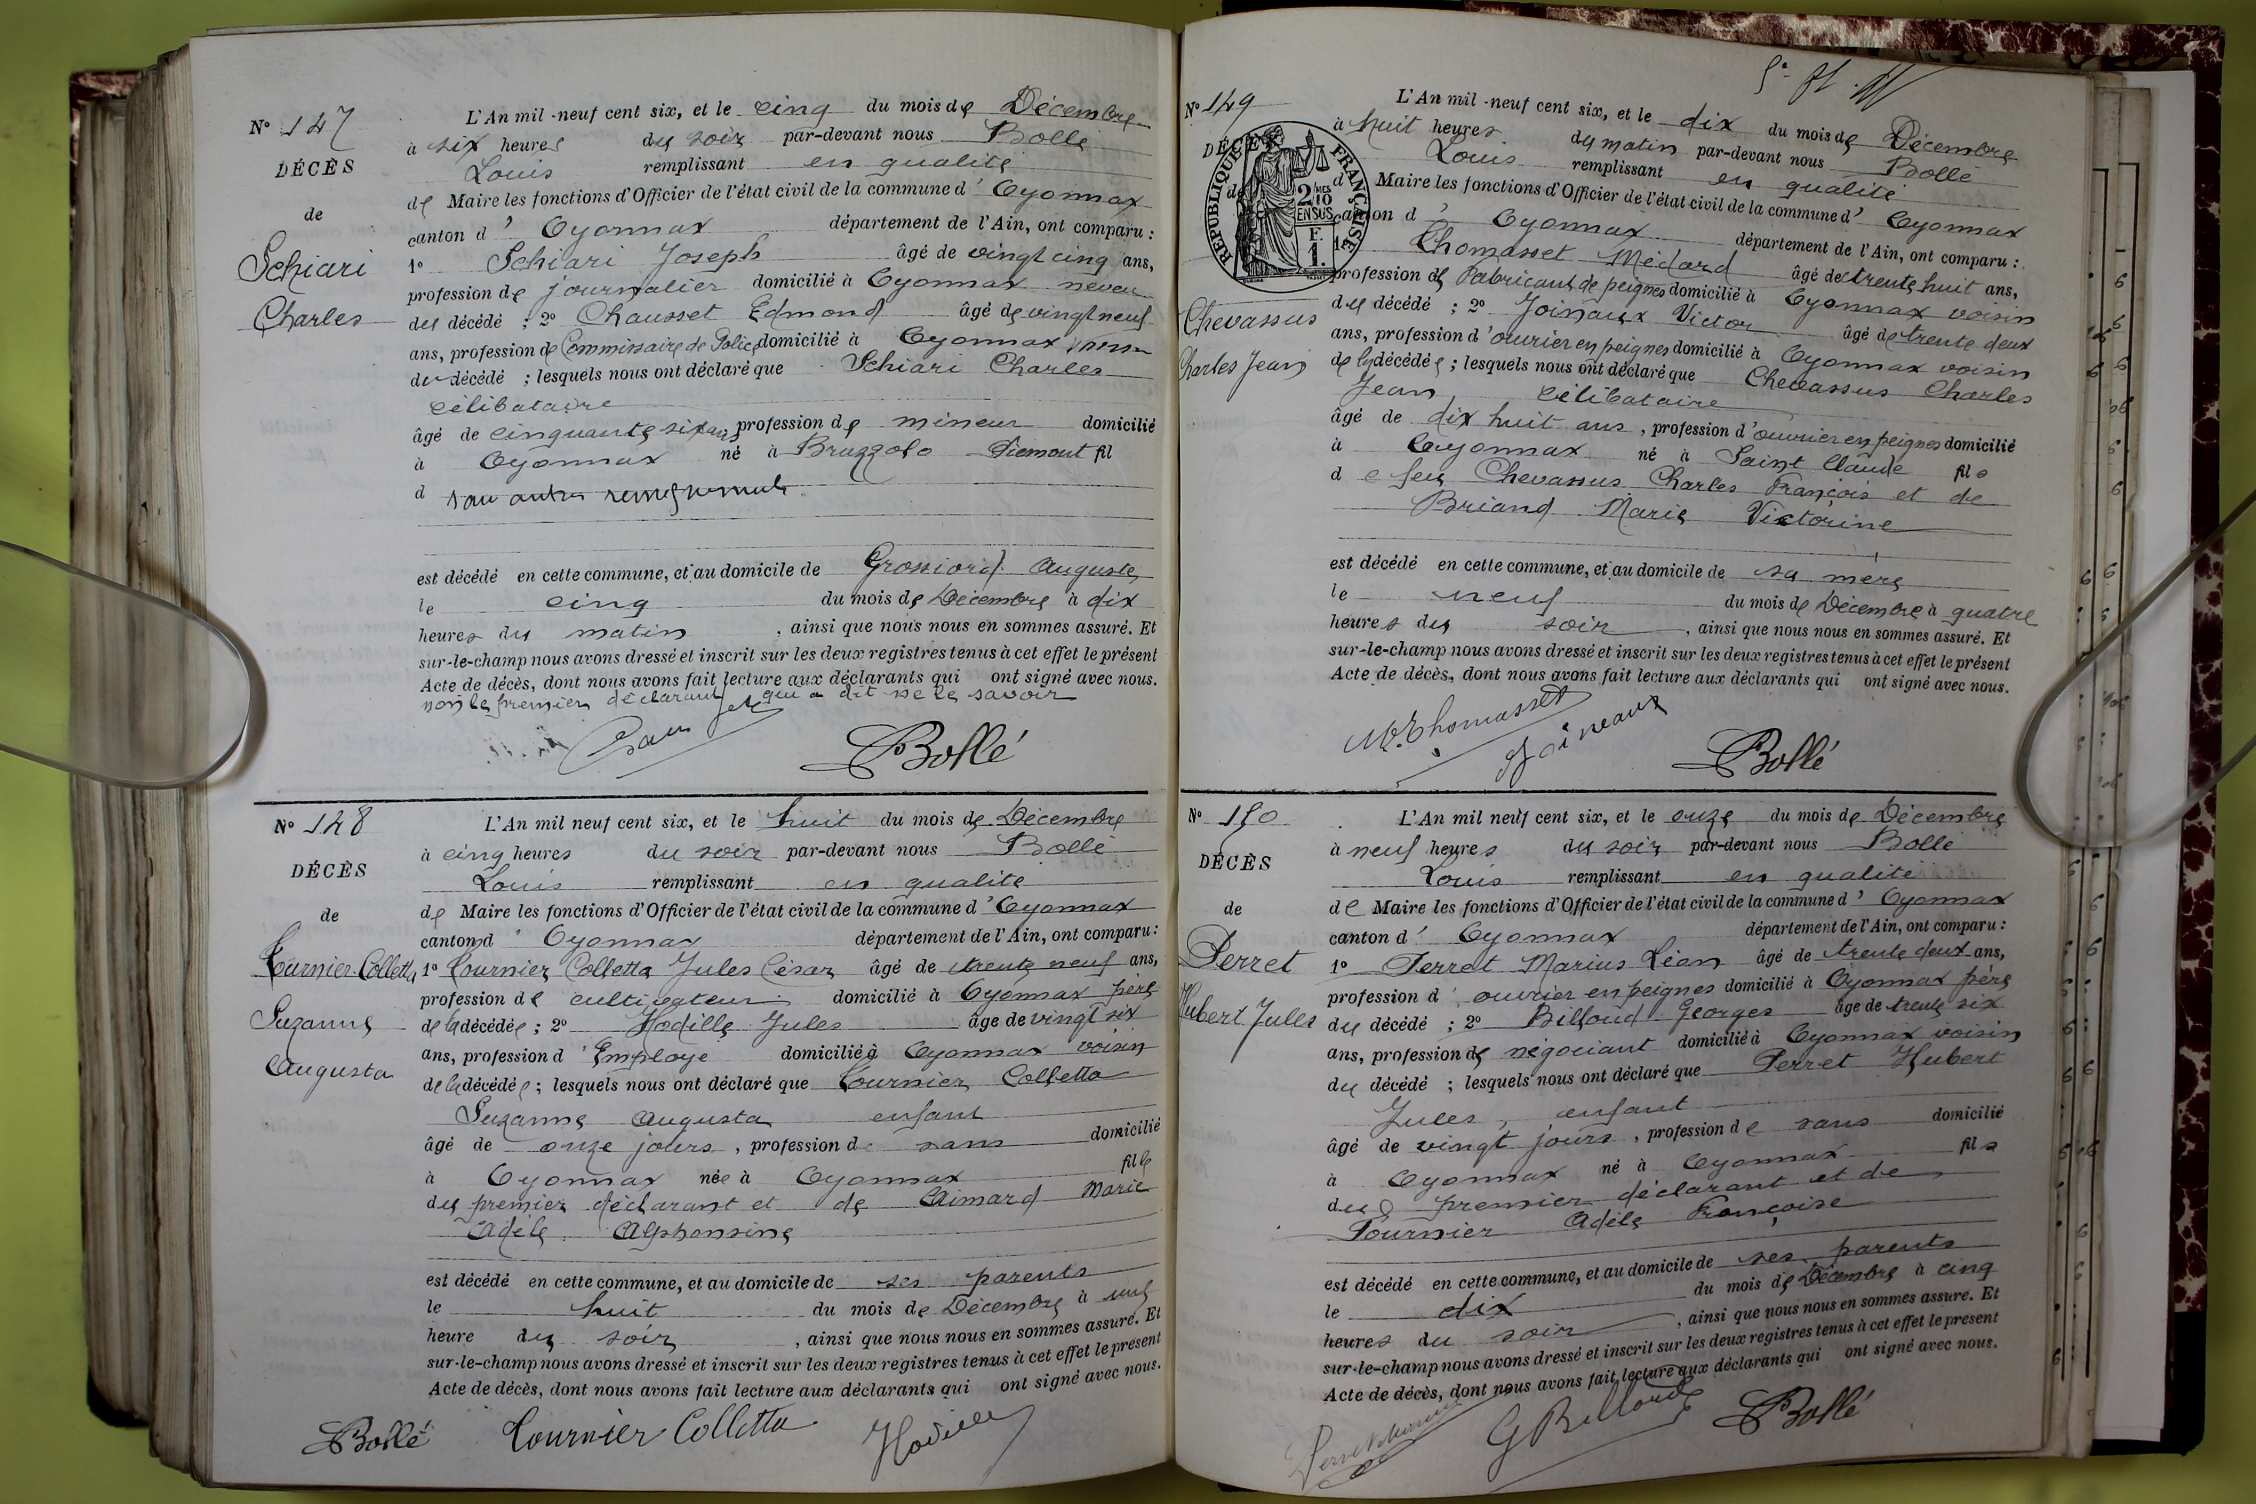 N° 147
DÉCÈS
de
Schiari
Charles
L'An mil-neuf cent six, et le cinq du mois de Décembre
à six heures du soir par-devant nous Bollé
Louis remplissant en qualité
de Maire les fonctions d'Officier de l'état civil de la commune d'Oyonnax
canton d'Oyonnax département de l'Ain, ont comparu :
1° Schiari Joseph âgé de vingt cinq ans,
profession de journalier domicilié à Oyonnax neveu
du décédé ; 2° Chausset Edmond âgé de vingt neuf
ans, profession de Commissaire de Police domicilié à Oyonnax
du décédé ; lesquels nous ont déclaré que Schiari Charles
célibataire
âgé de cinquante six ans, profession de mineur domicilié
à Oyonnax né à Bruzzolo Piémont fil
d sans autres renseignements
est décédé en cette commune, et au domicile de Grossiord Auguste
le cinq du mois de Décembre à dix
heures du matin, ainsi que nous nous en sommes assuré. Et
sur-le-champ nous avons dressé et inscrit sur les deux registres tenus à cet effet le présent
Acte de décès, dont nous avons fait lecture aux déclarants qui ont signé avec nous.
non le premier déclarant qui a dit ne le savoir
Bollé
N° 148
DÉCÈS
de
Tournier-Colletta
Suzanne
Augusta
L'An mil neuf cent six, et le huit du mois de Décembre
à cinq heures du soir par-devant nous Bollé
Louis remplissant en qualité
de Maire les fonctions d'Officier de l'état civil de la commune d'Oyonnax
canton d'Oyonnax département de l'Ain, ont comparu :
1° Tournier Colletta Jules César âgé de trente neuf ans,
profession de cultivateur domicilié à Oyonnax père
de la décédée ; 2° Hodille Jules âgé de vingt six
ans, profession d'Employé domicilié à Oyonnax voisin
de la décédée ; lesquels nous ont déclaré que Tournier Colletta
Suzanne Augusta enfant
âgé de onze jours, profession de sans domicilié
à Oyonnax née à Oyonnax fille
du premier déclarant et de Aimard Marie
Adèle Alphonsine
est décédé en cette commune, et au domicile de ses parents
le huit du mois de Décembre à une
heure du soir, ainsi que nous nous en sommes assuré. Et
sur-le-champ nous avons dressé et inscrit sur les deux registres tenus à cet effet le présent
Acte de décès, dont nous avons fait lecture aux déclarants qui ont signé avec nous.
Bollé Tournier Colletta Hodille
N° 149
DÉCÈS
d
RÉPUBLIQUE FRANÇAISE
2/10 MES
EN SUS
F.
1.
Chevassus
Charles Jean
L'An mil-neuf cent six, et le dix du mois de Décembre
à huit heures du matin par-devant nous Bollé
Louis remplissant en qualité
d Maire les fonctions d'Officier de l'état civil de la commune d'Oyonnax
canton d'Oyonnax département de l'Ain, ont comparu :
1° Thomasset Médard âgé de trente huit ans,
profession de Fabricant de peignes domicilié à Oyonnax voisin
du décédé ; 2° Joinaux Victor âgé de trente deux
ans, profession d'ouvrier en peignes domicilié à Oyonnax voisin
de la décédée ; lesquels nous ont déclaré que Chevassus Charles
Jean célibataire
âgé de dix huit ans, profession d'ouvrier en peignes domicilié
à Oyonnax né à Saint Claude fils
de feu Chevassus Charles François et de
Briand Marie Victorine
est décédé en cette commune, et au domicile de sa mère
le neuf du mois de Décembre à quatre
heures du soir, ainsi que nous nous en sommes assuré. Et
sur-le-champ nous avons dressé et inscrit sur les deux registres tenus à cet effet le présent
Acte de décès, dont nous avons fait lecture aux déclarants qui ont signé avec nous.
M. Thomasset Joineaux Bollé
N° 150
DÉCÈS
de
Perret
Hubert Jules
L'An mil neuf cent six, et le onze du mois de Décembre
à neuf heures du soir par-devant nous Bollé
Louis remplissant en qualité
de Maire les fonctions d'Officier de l'état civil de la commune d'Oyonnax
canton d'Oyonnax département de l'Ain, ont comparu :
1° Perret Marius Léon âgé de trente deux ans,
profession d'ouvrier en peignes domicilié à Oyonnax père
du décédé ; 2° Billoud Georges âgé de trente six
ans, profession de négociant domicilié à Oyonnax voisin
du décédé ; lesquels nous ont déclaré que Perret Hubert
Jules, enfant
âgé de vingt jours, profession de sans domicilié
à Oyonnax né à Oyonnax fils
du premier déclarant et de
Fournier Adèle Françoise
est décédé en cette commune, et au domicile de ses parents
le dix du mois de Décembre à cinq
heures du soir, ainsi que nous nous en sommes assuré. Et
sur-le-champ nous avons dressé et inscrit sur les deux registres tenus à cet effet le présent
Acte de décès, dont nous avons fait lecture aux déclarants qui ont signé avec nous.
G Billoud Bollé